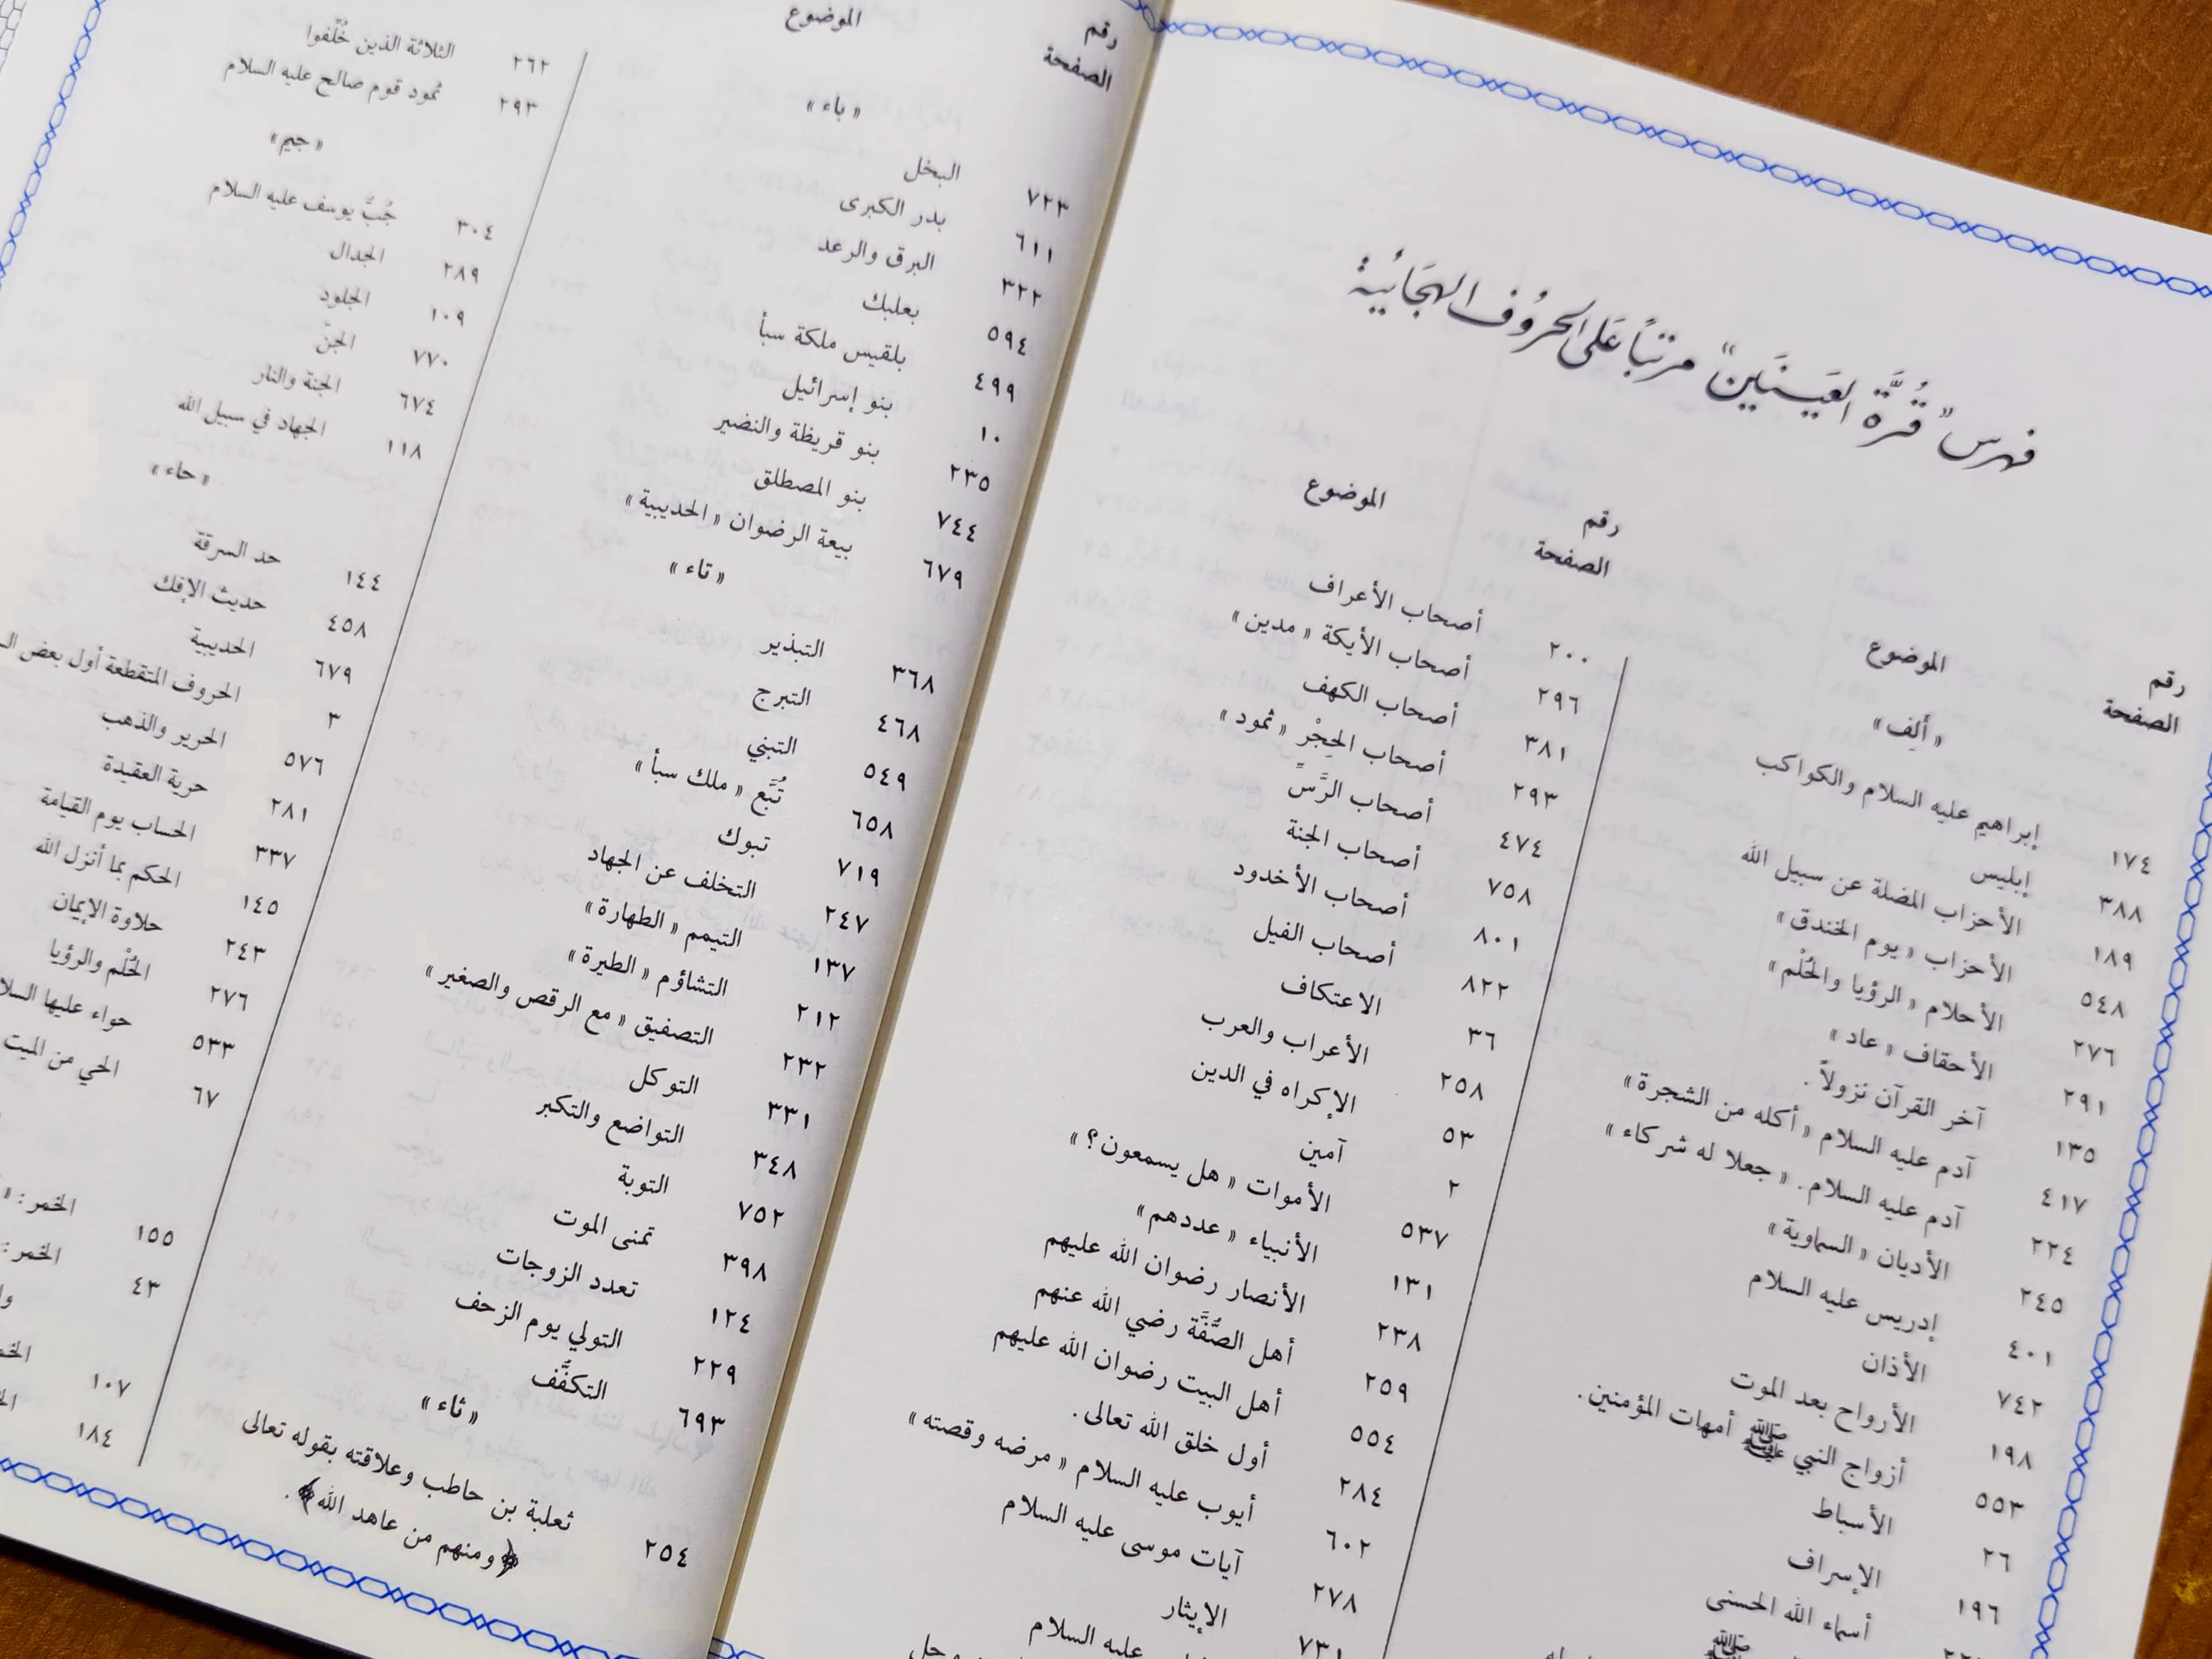 فهرس "قُرَّة العَينَين" مرتباً عَلى الحروُف الهجَائية
رقم الصفحة
الموضوع
«ألِف»
١٧٤ إبراهيم عليه السلام والكواكب
٣٨٨ إبليس
١٨٩ الأحزاب المضلة عن سبيل الله
٥٤٨ الأحزاب «يوم الخندق»
٢٧٦ الأحلام «الرؤيا والحُلْم»
٢٩١ الأحقاف «عاد»
١٣٥ آخر القرآن نزولاً.
٤١٧ آدم عليه السلام «أكله من الشجرة»
٢٢٤ آدم عليه السلام. «جعلا له شركاء»
٢٤٥ الأديان «السماوية»
٤٠١ إدريس عليه السلام
٧٤٢ الأذان
١٩٨ الأرواح بعد الموت
٥٥٣ أزواج النبي ﷺ أمهات المؤمنين.
٢٦ الأسباط
١٩٦ الإسراف
أسماء الله الحسنى
ﷺ
رقم الصفحة
الموضوع
٢٠٠ أصحاب الأعراف
٢٩٦ أصحاب الأيكة «مدين»
٣٨١ أصحاب الكهف
٢٩٣ أصحاب الحِجْرِ «ثمود»
٤٧٤ أصحاب الرَّسِّ
٧٥٨ أصحاب الجنة
٨٠١ أصحاب الأخدود
٨٢٢ أصحاب الفيل
٣٦ الاعتكاف
٢٥٨ الأعراب والعرب
٥٣ الإكراه في الدين
٢ آمين
٥٣٧ الأموات «هل يسمعون؟»
١٣١ الأنبياء «عددهم»
٢٣٨ الأنصار رضوان الله عليهم
٢٥٩ أهل الصُّفَّة رضي الله عنهم
٥٥٤ أهل البيت رضوان الله عليهم
٢٨٤ أول خلق الله تعالى.
٦٠٢ أيوب عليه السلام «مرضه وقصته»
٢٧٨ آيات موسى عليه السلام
٧٣١ الإيثار
عليه السلام
رقم الصفحة
الموضوع
«باء»
٧٢٣ البخل
٦١١ بدر الكبرى
٣٢٢ البرق والرعد
٥٩٤ بعلبك
٤٩٩ بلقيس ملكة سبأ
١٠ بنو إسرائيل
٢٣٥ بنو قريظة والنضير
٧٤٤ بنو المصطلق
٦٧٩ بيعة الرضوان «الحديبية»
«تاء»
٣٦٨ التبذير
٤٦٨ التبرج
٥٤٩ التبني
٦٥٨ تُبَّع «ملك سبأ»
٧١٩ تبوك
٢٤٧ التخلف عن الجهاد
١٣٧ التيمم «الطهارة»
٢١٢ التشاؤم «الطيرة»
٢٣٢ التصفيق «مع الرقص والصغير»
٣٣١ التوكل
٣٤٨ التواضع والتكبر
٧٥٢ التوبة
٣٩٨ تمنى الموت
١٢٤ تعدد الزوجات
٢٢٩ التولي يوم الزحف
٦٩٣ التكفُّف
«ثاء»
ثعلبة بن حاطب وعلاقته بقوله تعالى
٢٥٤ ﴿ومنهم من عاهد الله﴾.
٢٦٢ الثلاثة الذين خُلِّفوا
٢٩٣ ثمود قوم صالح عليه السلام
«جيم»
٣٠٤ جُبُّ يوسف عليه السلام
٢٨٩ الجدال
١٠٩ الجلود
٧٧٠ الجنّ
٦٧٤ الجنة والنار
١١٨ الجهاد في سبيل الله
«حاء»
١٤٤ حد السرقة
٤٥٨ حديث الإفك
٦٧٩ الحديبية
٣ الحروف المتقطعة أول بعض
٥٧٦ الحرير والذهب
٢٨١ حرية العقيدة
٣٣٧ الحساب يوم القيامة
١٤٥ الحكم بما أنزل الله
٢٤٣ حلاوة الإيمان
٢٧٦ الحُلْم والرؤيا
٥٣٣ حواء عليها
٦٧ الحي من الميت
١٥٥ الخمر:
٤٣ الخمر:
١٠٧
١٨٤